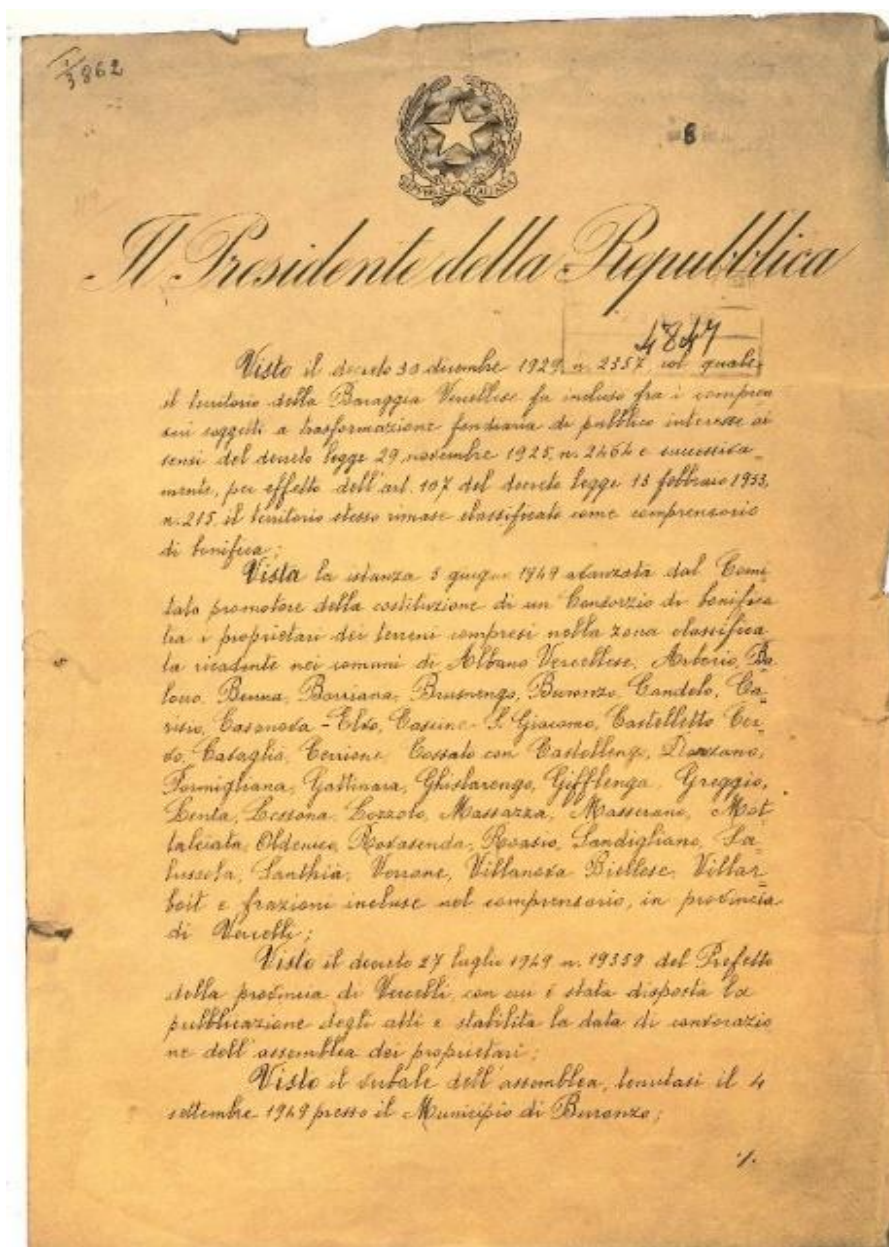 1/3 862
6
REPVBBLICA ITALIANA
Il Presidente della Repubblica
4847
Visto il decreto 30 dicembre 1929, n. 2357, col quale
il territorio della Baraggia Vercellese fu incluso fra i compren
sori soggetti a trasformazione fondiaria di pubblico interesse ai
sensi del decreto legge 29 novembre 1925, n. 2464 e successiva_
mente, per effetto dell'art. 107 del decreto legge 13 febbraio 1933,
n. 215, il territorio stesso rimase classificato come comprensorio
di bonifica;
Vista la istanza 3 giugno 1949 avanzata dal Comi
tato promotore della costituzione di un Consorzio di bonifica
tra i proprietari dei terreni compresi nella zona classifica
ta ricadente nei comuni di Albano Vercellese, Arborio, Ba
locco, Benna, Borriana, Brusnengo, Buronzo, Candelo, Ca_
risio, Casanova-Elvo, Cascine-S. Giacomo, Castelletto Cer_
vo, Cavaglià, Cerrione, Cossato con Castellengo, Dorzano,
Formigliana, Gattinara, Ghislarengo, Gifflenga, Greggio,
Lenta, Lessona, Lozzolo, Massazza, Masserano, Mot
talciata, Oldenico, Rovasenda, Roasio, Sandigliano, Sa_
lussola, Santhià, Verrone, Villanova Biellese, Villar_
boit e frazioni incluse nel comprensorio, in provincia
di Vercelli;
Visto il decreto 27 luglio 1949 n. 19359 del Prefetto
della provincia di Vercelli, con cui è stata disposta la
pubblicazione degli atti e stabilita la data di convocazio
ne dell'assemblea dei proprietari;
Visto il verbale dell'assemblea, tenutasi il 4
settembre 1949 presso il Municipio di Buronzo;
./.